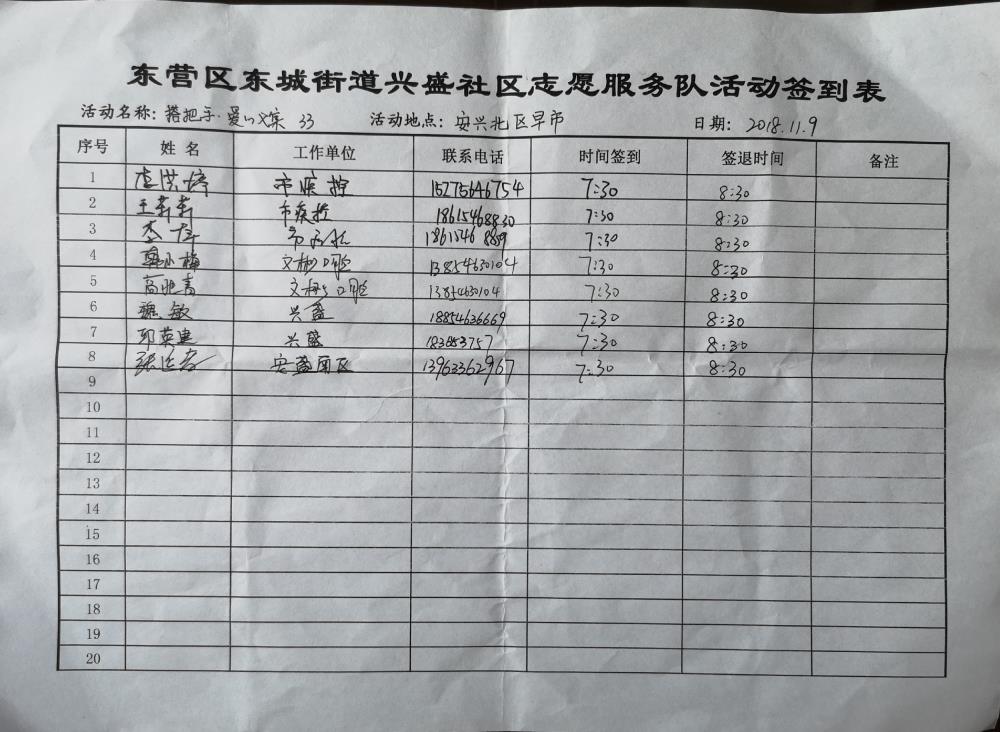 东营区东城街道兴盛社区志愿服务队活动签到表
活动名称：搭把手·爱心义集 33 活动地点：安兴北区早市 日期：2018.11.9
序号 姓名 工作单位 联系电话 时间签到 签退时间 备注
1 市疾控 15275646754 7:30 8:30
2 王莉莉 市疾控 18615468830 7:30 8:30
3 市疾控 7:30 8:30
4 文彬口腔 13854630104 7:30 8:30
5 文彬口腔 13854630104 7:30 8:30
6 魏敏 兴盛 18854636669 7:30 8:30
7 兴盛 7:30 8:30
8 安盛南区 13963362967 7:30 8:30
9
10
11
12
13
14
15
16
17
18
19
20